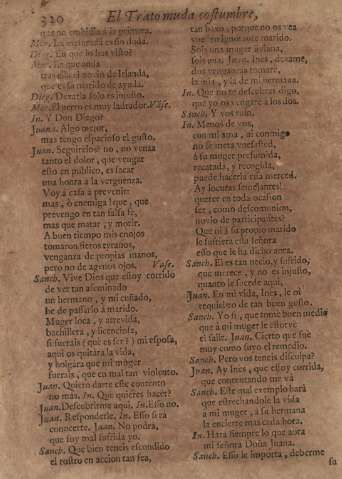 320 El Trato muda costumbre,
que no embista a la primera.
Mer. La mejorada es sin duda.
Dieg. En que lo has visto?
Mer. En que aulla
tras ella el
que es marido de ayuda.
Dieg. Dexarla solo es injusto.
Mer. El perro es muy ladrador. Vase.
In. Y Don Diego?
Juana. Algo mejor,
mas tengo espacioso el gusto.
Juan. Seguirèlos? no, no venza
tanto el dolor, que vengar
esto en publico, es sacar
una honra à la verguenza.
Voy à casa à prevenir
mas, ò enemiga! que, que
prevengo en tan falsa fè,
mas que matar, y morir.
A buen tiempo mis enojos
tomaron fieros tyranos,
venganza de propias manos,
pero no de agenos ojos. Vase.
Sanch. Vive Dios que estoy corrido
de ver tan afeminado
un hermano, y mi cuñado,
he de passarlo à marido.
Muger loca, y atrevida,
bachillera, y licenciosa,
si fuerais (què es ser?) mi esposa,
aqui os quitàra la vida,
y holgàra que mi muger
fuerais, que es mal tan violento.
Juan. Quiero darte este contento
no mas. In. Què quieres hacer?
Juan. Descubrirme aqui. In. Esso no.
Juan. Respondele. In. Esso serà
concierto. Juan. No podrà,
que soy mal sufrida yo.
Sanch. Què bien teneis escondido
el rostro en accion tan fea,
tan baxo, porque no os vea
vuestro ignorante marido.
Sois una muger liviana,
sois una. Juan. Ines, dexame,
dos venganzas tomarè,
la mia, y la de mi hermana.
In. Que no te descubras digo,
que yo os vengarè a los dos.
Sanch. Y vos ruin.
In. Menos de vos,
con mi ama, ni conmigo
no se meta vuesasted,
à su muger presumida,
recatada, y recogida,
puede hacerla essa merced.
Ay locuras semejantes!
querer en toda ocasion
ser, como descomunion,
novio de participantes!
Que ni à su propio marido
le sufriera essa señora
esso que le ha dicho aora.
Sanch. El es tan necio, y sufrido,
que merece, y no es injusto,
quanto le sucede aqui.
Juan. En mi vida, Ines, le oì
requiebro de tan buen gusto.
Sanch. Yo sì, que tomè buen medio
que à mi muger le estorve
el salir. Juan. Cierto que fue
muy como suyo el remedio.
Sanch. Pero vos teneis disculpa?
Juan. Ay Ines, que estoy corrida,
que contentando me và
Sanch. Este que exemplo harà
que estrechandole la vida
à mi muger, à su hermana
la encierre mas cada hora.
In. Harà siempre lo que aora
mi señora Doña Juana.
Sanch. Esso le importa, deberme
su